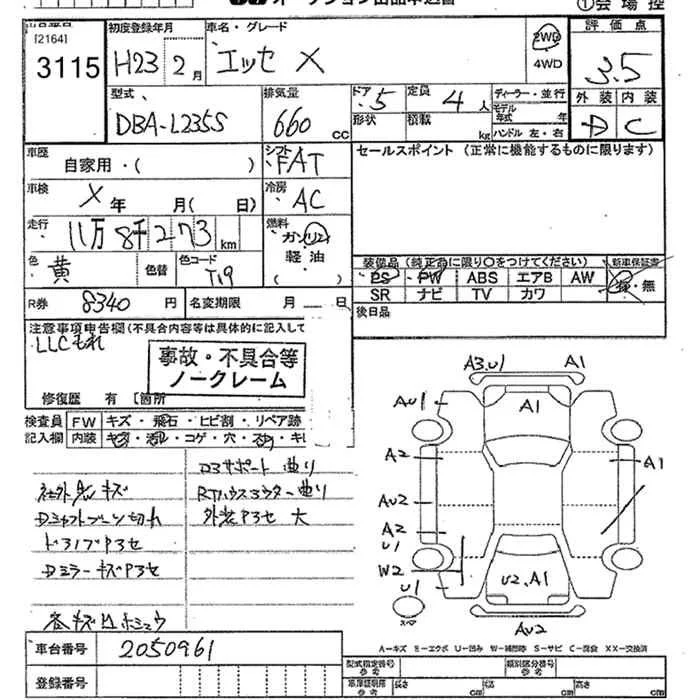 オークション出品申込書
①会場控
[2164]
3115
初度登録年月
H23 2月
車名・グレード
エッセ X
2WD
4WD
評価点
3.5
型式
DBA-L235S
排気量
660 cc
ドア 5
形状
定員 4 人
積載 kg
ディーラー・並行
モデル年式 年
ハンドル 左・右
外装 内装
D C
車歴
自家用・( )
シフト
FAT
セールスポイント (正常に機能するものに限ります)
車検
X年 月( 日)
冷房
AC
走行
11万8千273km
燃料
ガソリン
軽油
( )
色
黄
色替
色コード
T19
装備品 (純正品に限り○をつけてください)
新車保証書
PS PW ABS エアB AW
SR ナビ TV カワ
有・無
R券 8340円
名変期限 月 日
後日品
注意事項申告欄(不具合内容等は具体的に記入して
LLCもれ
事故・不具合等
ノークレーム
修復歴 有 [箇所
検査員記入欄
FW キズ・飛石・ヒビ割・リペア跡
内装 コゲ・穴・
D3サポート曲り
社外 キズ
曲り
Dシャフトブーツ切れ
外装P3セ 大
Dミラーキズ
車台番号 2050961
登録番号
A3.U1 A1
AU1 A1
A2 A1
AU2
A2
U1
W2
U2、A1
スペア
AU2
A-キズ E-エクボ U-凹み W-補修跡 S-サビ C-腐食 XX-交換済
型式指定番号
参考
類別区分番号
参考
車庫証明用
参考
長さ cm
幅 cm
高さ cm